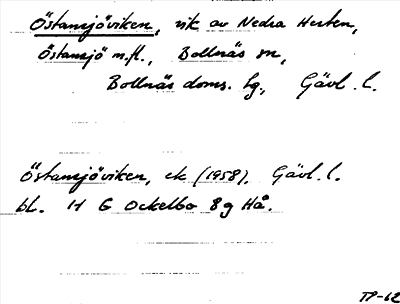 Östansjöviken, vik av Nedra Herten,
Östansjö m.fl., Bollnäs sn,
Bollnäs doms. tg., Gävl. l.
Östansjöviken, ek (1958). Gävl. l.
bl. 14 G Ockelbo 8g Hå.
TP-62